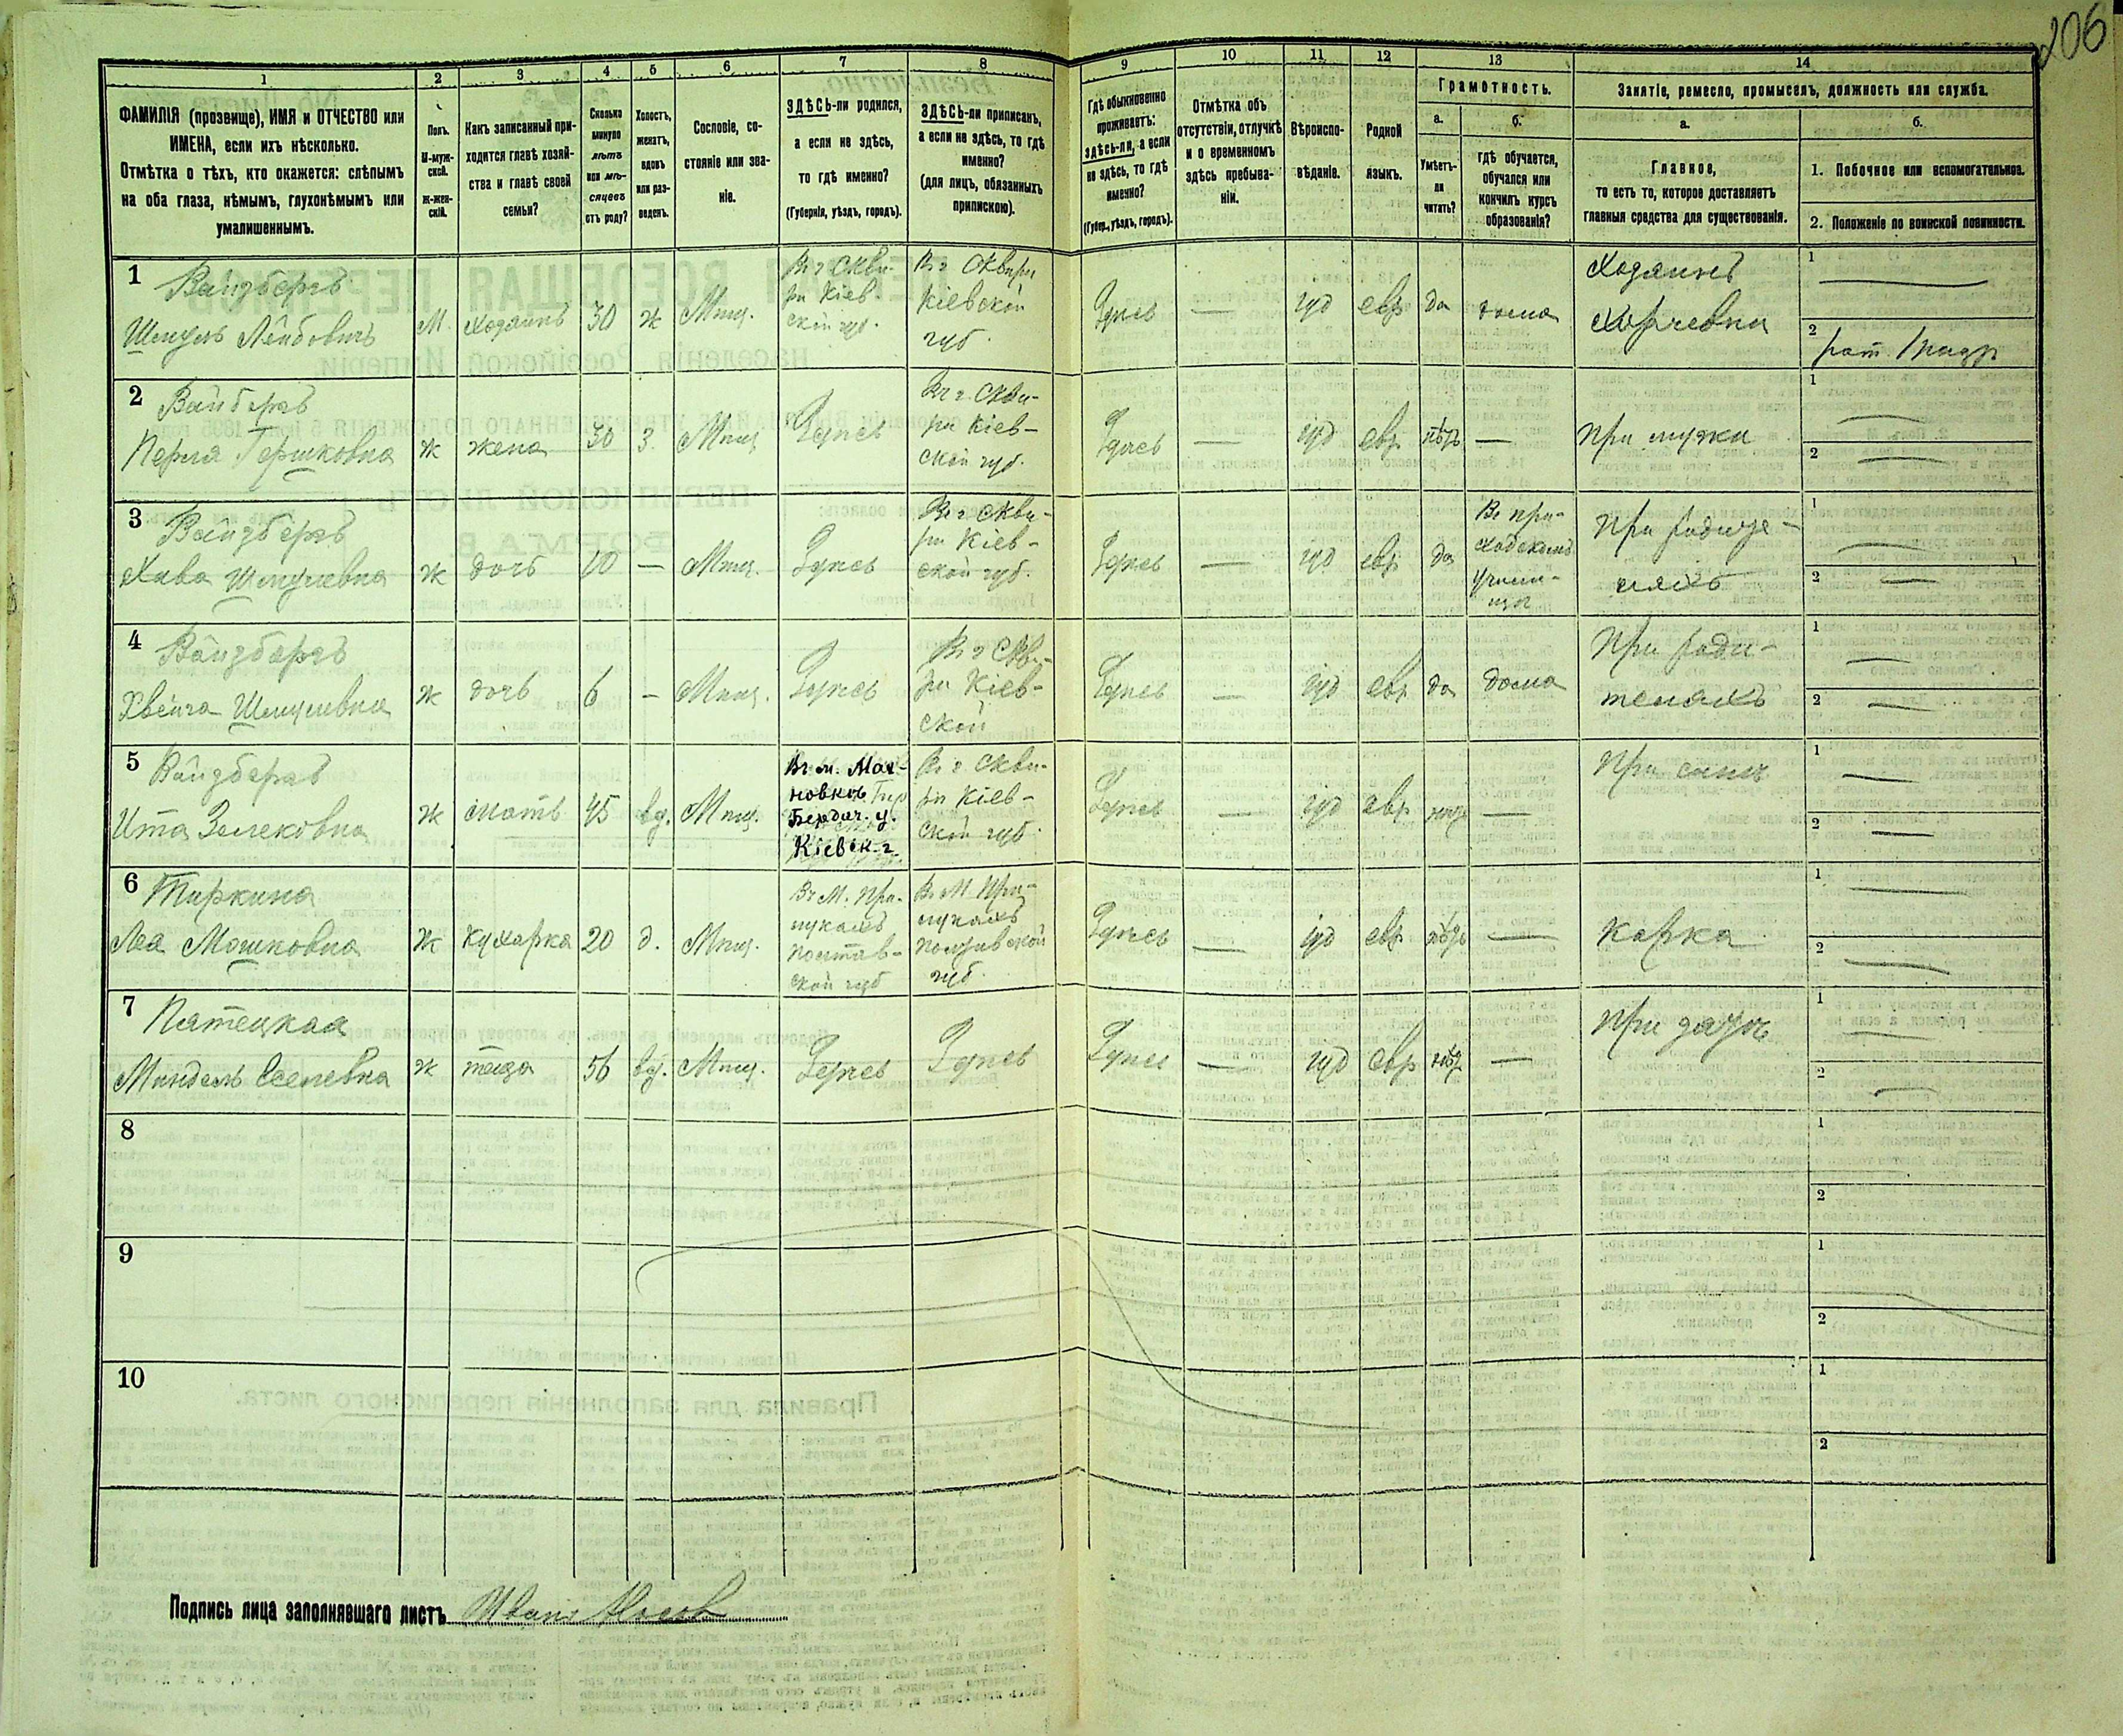 206
1 2 3 4 5 6 7 8 9 10 11 12 13 14
ФАМИЛІЯ (прозвище), ИМЯ и ОТЧЕСТВО или
ИМЕНА, если ихъ нѣсколько.
Отмѣтка о тѣхъ, кто окажется: слѣпымъ
на оба глаза, нѣмымъ, глухонѣмымъ или
умалишеннымъ.
Полъ.
М-муж-
ской.
ж-жен-
скій.
Какъ записанный при-
ходится главѣ хозяй-
ства и главѣ своей
семьи?
Сколько
минуло
лѣтъ
или мѣ-
сяцевъ
отъ роду?
Холостъ,
женатъ,
вдовъ
или раз-
веденъ.
Сословіе, со-
стояніе или зва-
ніе.
ЗДѢСЬ-ли родился,
а если не здѣсь,
то гдѣ именно?
(Губернія, уѣздъ, городъ).
ЗДѢСЬ-ли приписанъ,
а если не здѣсь, то гдѣ
именно?
(для лицъ, обязанныхъ
припискою).
Гдѣ обыкновенно
проживаетъ:
здѣсь-ли, а если
не здѣсь, то гдѣ
именно?
(Губер., уѣздъ, городъ).
Отмѣтка объ
отсутствіи, отлучкѣ
и о временномъ
здѣсь пребыва-
ніи.
Вѣроиспо-
вѣданіе.
Родной
языкъ.
Грамотность.
а.
Умѣетъ-
ли
читать?
б.
гдѣ обучается,
обучался или
кончилъ курсъ
образованія?
Занятіе, ремесло, промыселъ, должность или служба.
а.
Главное,
то есть то, которое доставляетъ
главныя средства для существованія.
б.
1. Побочное или вспомогательное.
2. Положеніе по воинской повинности.
1
Вайзбергъ
Шмуль Лейбовичъ
М.
хозяинъ
30
ж
Мпщ.
Въ г Скви-
рѣ Кіев-
ской губ.
Въ г Сквирѣ
Кіевской
губ.
Здѣсь
—
іуд
евр
да
дома
Хозяинъ
Харчевни
1
2
рат. 1 разр
2
Вайзбергъ
Перля Гершковна
ж
жена
30
З.
Мпщ
Здѣсь
Въ г. Скви-
рѣ Кіев-
ской губ.
Здѣсь
—
іуд
евр
нѣтъ
—
При мужѣ
1
2
3
Вайзбергъ
Хава Шмулевна
ж
дочь
10
—
Мпщ.
Здѣсь
Въ г Скви-
рѣ Кіев-
ской губ.
Здѣсь
—
іуд
евр
да
Въ при-
ходскомъ
училищѣ
При родите-
ляхъ
1
2
4
Вайзбергъ
Шмулевна
ж
дочь
6
—
Мпщ.
Здѣсь
Въ г Скви-
рѣ Кіев-
ской
Здѣсь
—
іуд
евр
да
дома
При роди-
теляхъ
1
2
5
Вайзбергъ
Ита Зелековна
ж
мать
45
вд.
Мпщ.
Въ м. Мах-
новкѣ
Бердич. у.
Кіевск. г
Въ г. Скви-
рѣ Кіев-
ской губ.
Здѣсь
—
іуд
евр
нѣтъ
—
При сынѣ
1
2
6
Тиркина
Леа Мошковна
ж
кухарка
20
д.
Мпщ.
Въ М. При-
лукахъ
Полтав-
ской губ
Въ М. При-
лукахъ
Полтавской
губ.
Здѣсь
—
іуд
евр
нѣтъ
—
1
2
7
Пятецкая
Миндель
ж
теща
56
вд.
Мпщ.
Здѣсь
Здѣсь
Здѣсь
—
іуд
евр
нѣтъ
—
При зятѣ
1
2
8
1
2
9
1
2
10
1
2
Подпись лица заполнявшаго листъ Иванъ